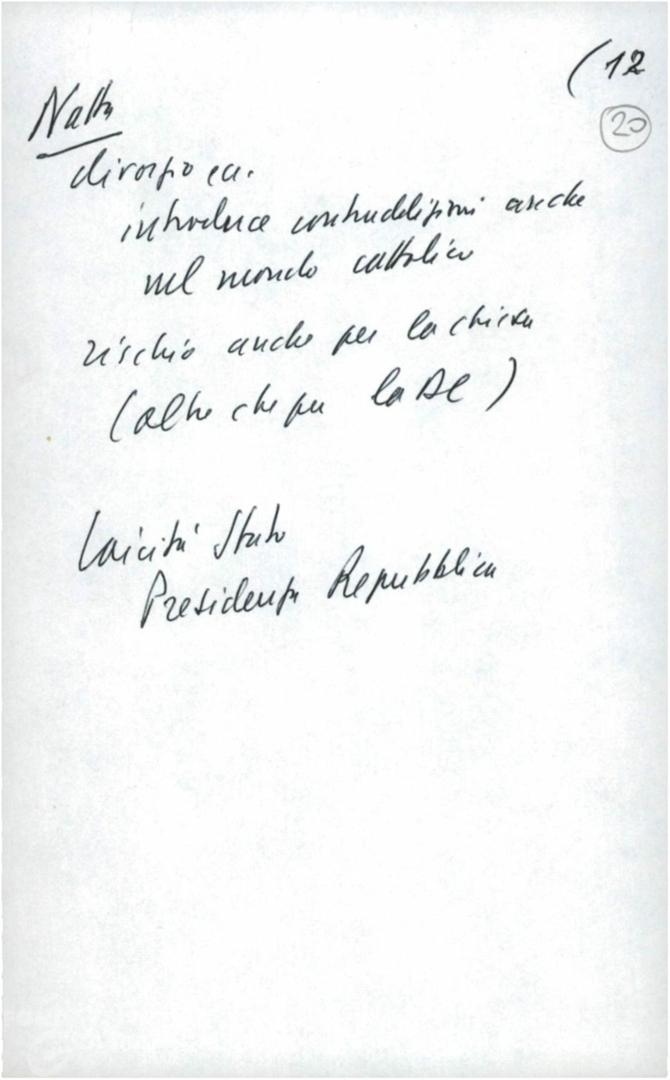 (12
20
Natta
divorzio ecc.
introduce contraddizioni anche
nel mondo cattolico
rischio anche per la chiesa
(oltre che per la DC)
Laicità Stato
Presidenza Repubblica